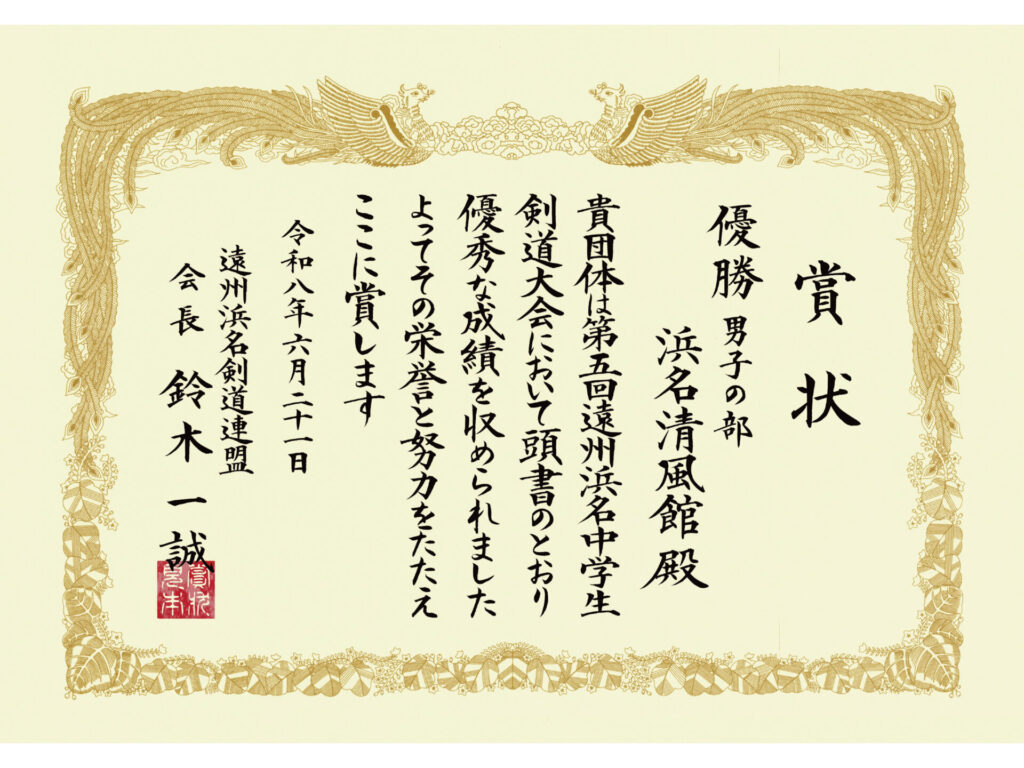 賞状
優勝 男子の部
浜名清風館 殿
貴団体は第五回遠州浜名中学生
剣道大会において頭書のとおり
優秀な成績を収められました
よってその栄誉と努力をたたえ
ここに賞します
令和八年六月二十一日
遠州浜名剣道連盟
会長 鈴木一誠
賞状
見本